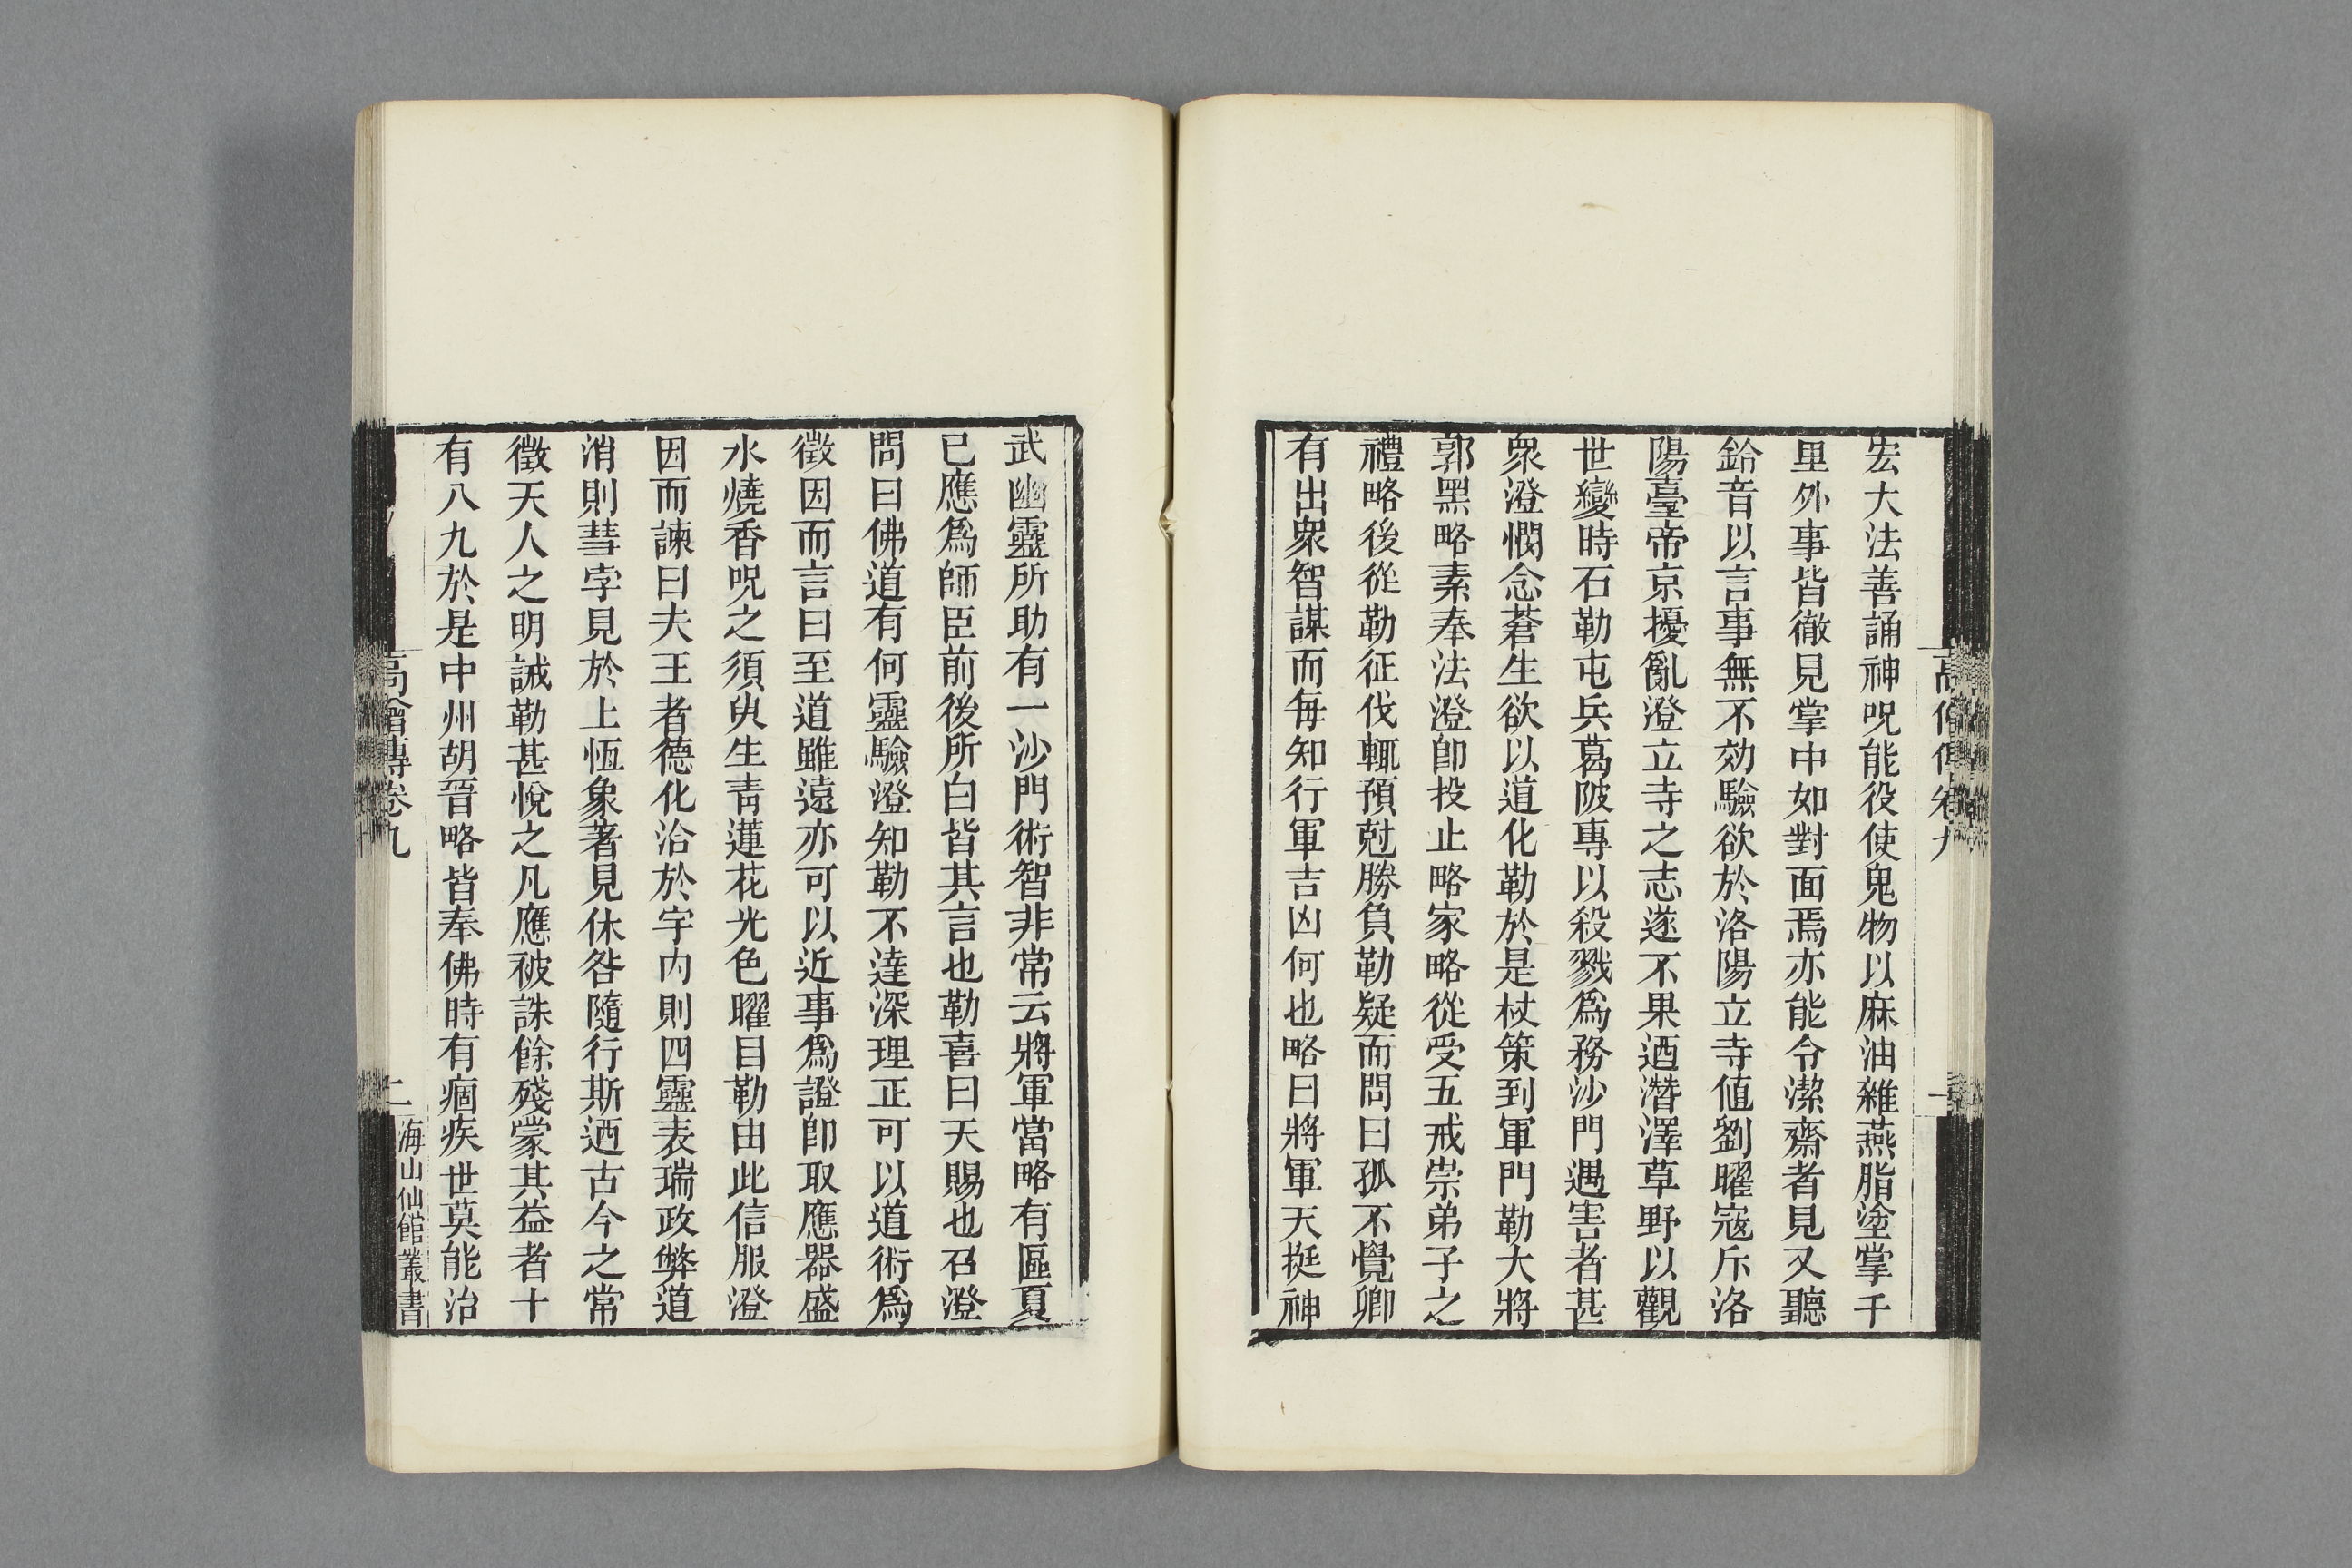 宏大法善誦神呪能役使鬼物以麻油雜燕脂塗掌千
里外事皆徹見掌中如對面焉亦能令潔齋者見又聽
鈴音以言事無不効驗欲於洛陽立寺値劉曜寇斥洛
陽臺帝京擾亂澄立寺之志遂不果迺潛澤草野以觀
世變時石勒屯兵葛陂專以殺戮爲務沙門遇害者甚
衆澄憫念蒼生欲以道化勒於是杖策到軍門勒大將
郭黑略素奉法澄卽投止略家略從受五戒崇弟子之
禮略後從勒征伐輒預尅勝負勒疑而問曰孤不覺卿
有出衆智謀而每知行軍吉凶何也略曰將軍天挺神
高僧傳卷九
一
武幽靈所助有一沙門術智非常云將軍當略有區夏
已應爲師臣前後所白皆其言也勒喜曰天賜也召澄
問曰佛道有何靈驗澄知勒不達深理正可以道術爲
徵因而言曰至道雖遠亦可以近事爲證卽取應器盛
水燒香呪之須臾生靑蓮花光色曜目勒由此信服澄
因而諫曰夫王者德化洽於宇內則四靈表瑞政弊道
消則彗孛見於上恆象著見休咎隨行斯迺古今之常
徵天人之明誡勒甚悅之凡應被誅餘殘蒙其益者十
有八九於是中州胡晉略皆奉佛時有痼疾世莫能治
高僧傳卷九
二
海山仙館叢書